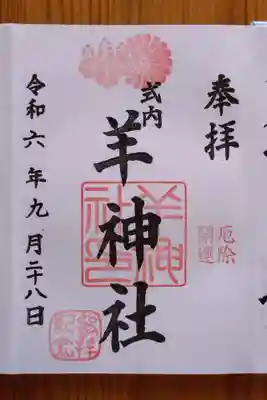 奉拝
厄除
開運
式内
羊神社
羊神
社印
令和六年九月二十八日
参拝
記念